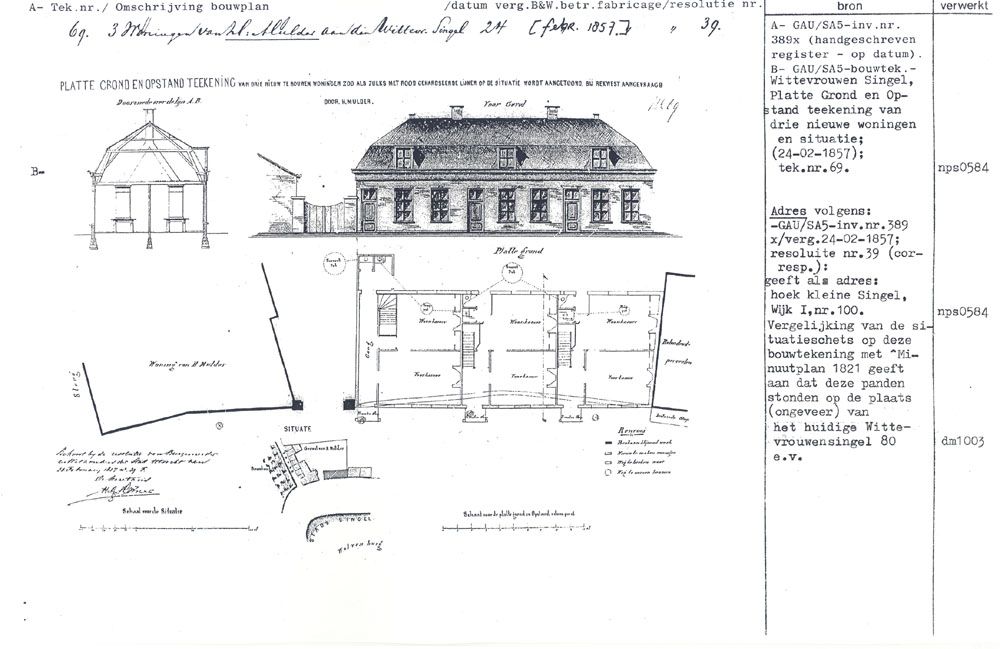 A- Tek.nr./ Omschrijving bouwplan /datum verg.B&W.betr.fabricage/resolutie nr.
bron
verwerkt
69. 3 Woningen van H. Mulder aan den Wittevr. Singel 24 [febr. 1857.] " 39.
PLATTE GROND EN OPSTAND TEEKENING VAN DRIE NIEUW TE BOUWEN WONINGEN ZOO ALS ZULKS MET ROOD GEHARSEERDE LIJNEN OP DE SITUATIE WORDT AANGETOOND. BIJ REKWEST AANGEVRAAGD
DOOR. H. MULDER.
Doorsnede over de lijn A.B.
Voor Gevel
B-
Platte grond
Woonkamer
Woonkamer
Woonkamer
Voorkamer
Voorkamer
Voorkamer
Gang
Woning van H Mulder
SITUATE
STADS SINGEL
Schaal voor de Situatie
A- GAU/SA5-inv.nr.
389x (handgeschreven
register - op datum).
B- GAU/SA5-bouwtek.-
Wittevrouwen Singel,
Platte Grond en Op-
stand teekening van
drie nieuwe woningen
en situatie;
(24-02-1857);
tek.nr.69.
nps0584
Adres volgens:
-GAU/SA5-inv.nr.389
x/verg.24-02-1857;
resoluite nr.39 (cor-
resp.):
geeft als adres:
hoek kleine Singel,
Wijk I,nr.100.
nps0584
Vergelijking van de si-
tuatieschets op deze
bouwtekening met ^Mi-
nuutplan 1821 geeft
aan dat deze panden
stonden op de plaats
(ongeveer) van
het huidige Witte-
vrouwensingel 80
e.v.
dm1003